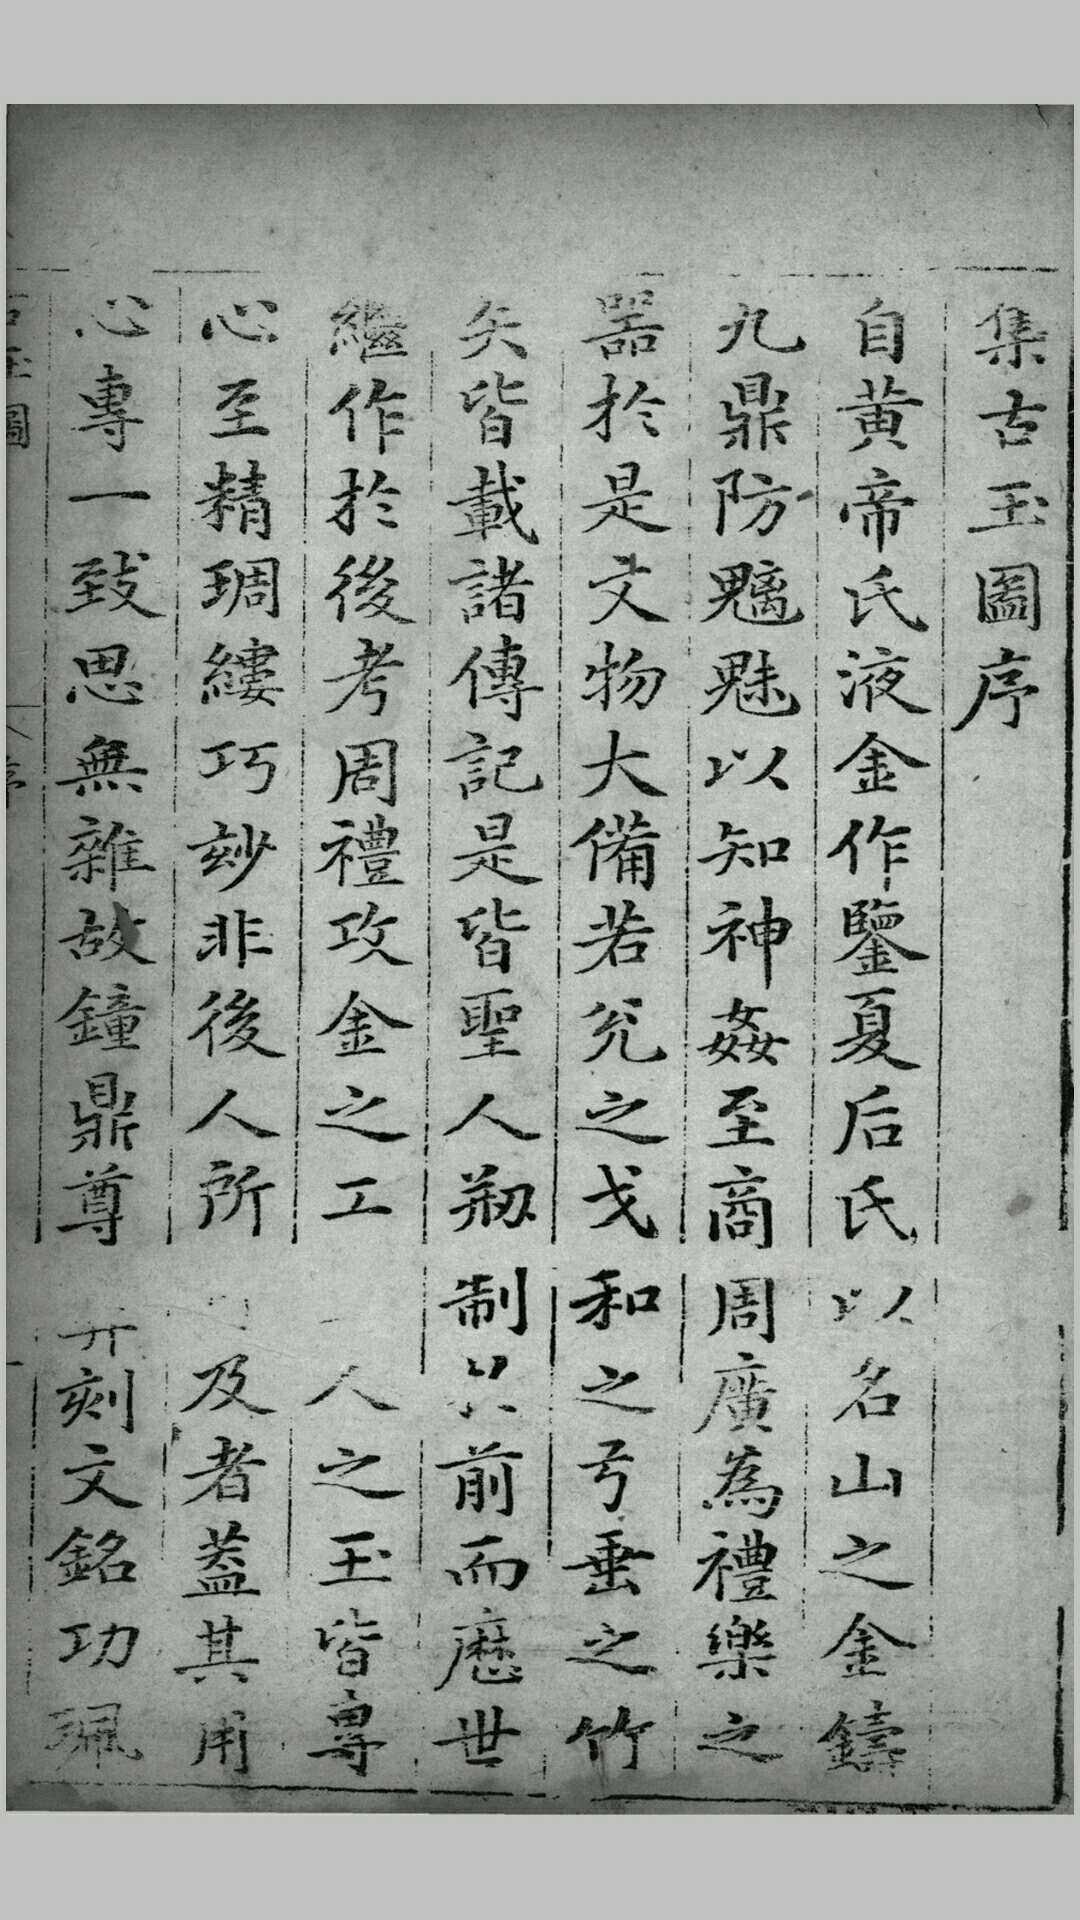 集古玉圖序
自黄帝氏液金作鑒夏后氏以名山之金鑄
九鼎防魑魅以知神姦至商周廣為禮樂之
噐於是文物大備若兊之戈和之弓垂之竹
矢皆載諸傳記是皆聖人剏制前而歷世
繼作於後考周禮攻金之工人之玉皆專
心至精琱縷巧玅非後人所及者葢其用
心專一致思無雜故鐘鼎尊刻文銘功珮
古玉圖
序